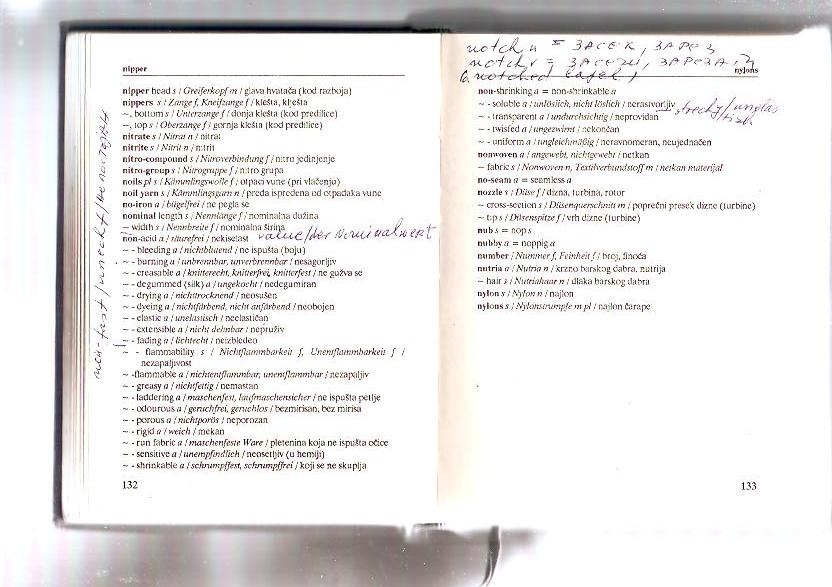 nipper
nipper head s / Greiferkopf m / glava hvatača (kod razboja)
nippers s / Zange f, Kneifzange f / klešta, klješta
~, bottom s / Unterzange f / donja klešta (kod predilice)
~, top s / Oberzange f / gornja klešta (kod predilice)
nitrate s / Nitrat n / nitrat
nitrite s / Nitrit n / nitrit
nitro-compound s / Nitroverbindung f / nitro jedinjenje
nitro-group s / Nitrogruppe f / nitro grupa
noils pl s / Kämmlingswolle f / otpaci vune (pri vlačenju)
noil yarn s / Kämmlingsgarn n / preda ispredena od otpadaka vune
no-iron a / bügelfrei / ne pegla se
nominal length s / Nennlänge f / nominalna dužina
~ width s / Nennbreite f / nominalna širina
value/der Nominalwert
non-acid a / säurefrei / nekiselast
~ - bleeding a / nichtblutend / ne ispušta (boju)
~ - burning a / unbrennbar, unverbrennbar / nesagorljiv
~ - creasable a / knitterecht, knitterfrei, knitterfest / ne gužva se
~ - degummed (silk) a / ungekocht / nedegumiran
~ - drying a / nichttrocknend / neosušen
~ - dyeing a / nichtfärbend, nicht anfärbend / neobojen
~ - elastic a / unelastisch / neelastičan
~ - extensible a / nicht dehnbar / nepruživ
~ - fading a / lichtecht / neizbledeo
~ - flammability s / Nichtflammbarkeit f, Unentflammbarkeit f /
nezapaljivost
~ -flammable a / nichtentflammbar, unentflammbar / nezapaljiv
~ - greasy a / nichtfettig / nemastan
~ - laddering a / maschenfest, laufmaschensicher / ne ispušta petlje
~ - odourous a / geruchfrei, geruchlos / bezmirisan, bez mirisa
~ - porous a / nichtporös / neporozan
~ - rigid a / weich / mekan
~ - run fabric a / maschenfeste Ware / pletenina koja ne ispušta očice
~ - sensitive a / unempfindlich / neosetljiv (u hemiji)
~ - shrinkable a / schrumpffest, schrumpffrei / koji se ne skuplja
non-fast/unecht/
132
notch n = ЗАСЕК, ЗАРЕЗ
notch v =
notched
nylons
non-shrinking a = non-shrinkable a
~ - soluble a / unlöslich, nicht löslich / nerastvorljiv
~ - transparent a / undurchsichtig / neprovidan
~ - twisted a / ungezwirnt / nekončan
~ - uniform a / ungleichmäßig / neravnomeran, neujednačen
nonwoven a / angewebt, nichtgewebt / netkan
~ fabric s / Nonwoven n, Textilverbundstoff m / netkan materijal
no-seam a = seamless a
nozzle s / Düse f / dizna, turbina, rotor
~ cross-section s / Düsenquerschnitt m / poprečni presek dizne (turbine)
~ tip s / Düsenspitze f / vrh dizne (turbine)
nub s = nop s
nubby a = noppig a
number / Nummer f, Feinheit f / broj, finoća
nutria a / Nutria n / krzno barskog dabra, nutrija
~ hair s / Nutriahaar n / dlaka barskog dabra
nylon s / Nylon n / najlon
nylons s / Nylonstrumpfe m pl / najlon čarape
133